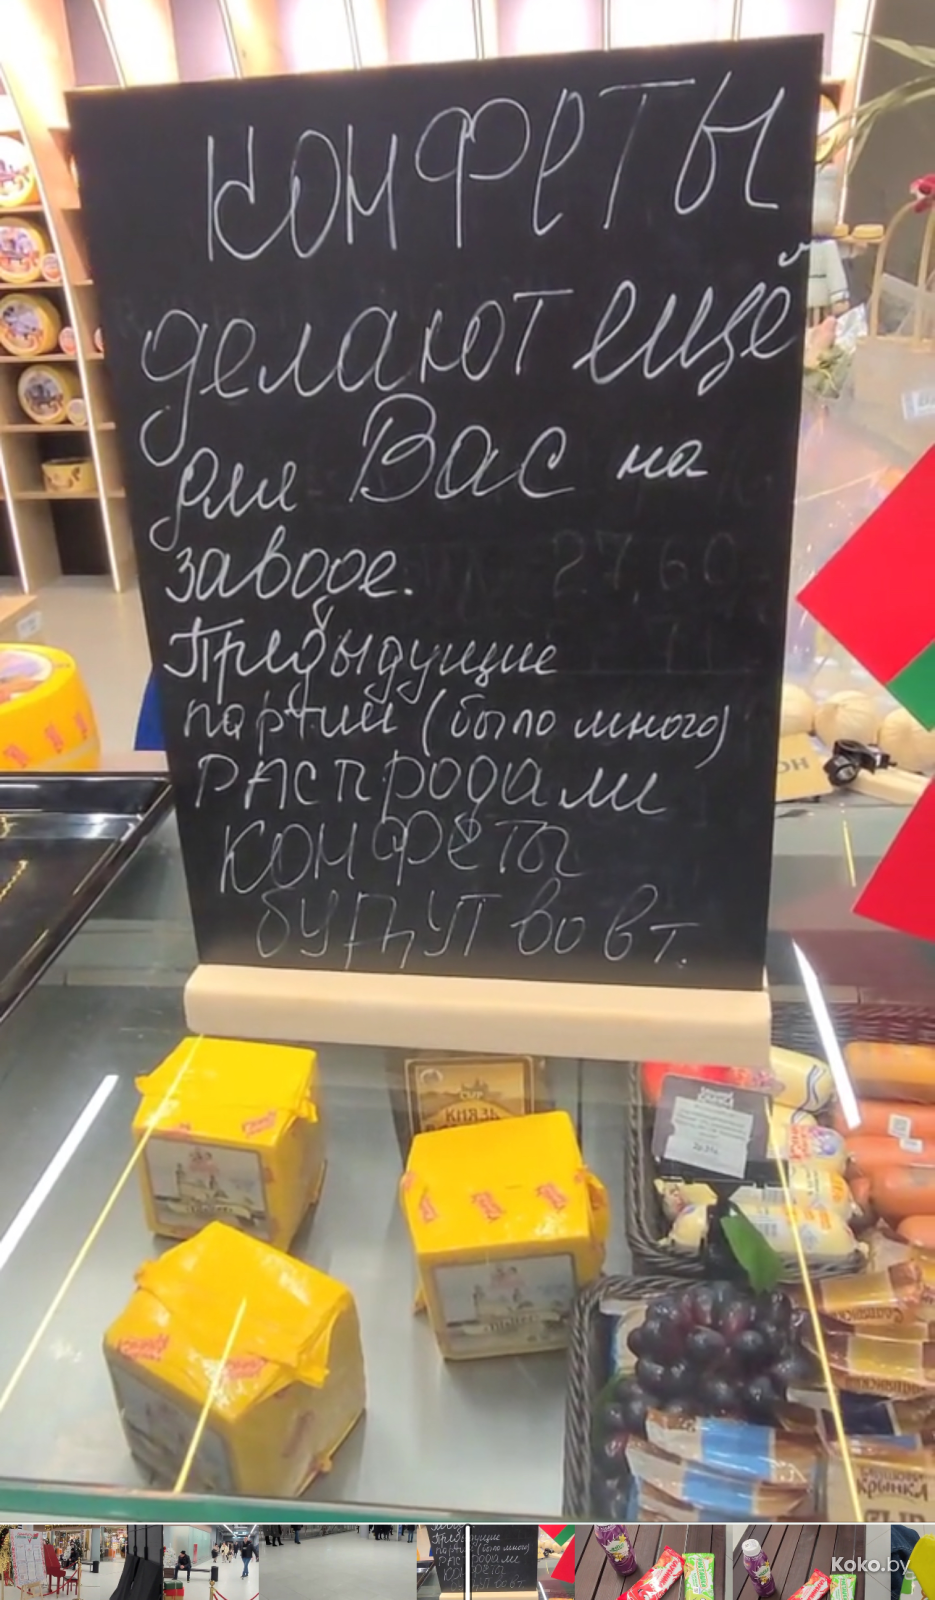 Конфеты
делают ещё
для Вас на
заводе.
Предыдущие
партии (было много)
РАСПРОдали
Конфеты
будут во вт.
27,60
СЫР
КНЯЗЬ
Koko.by